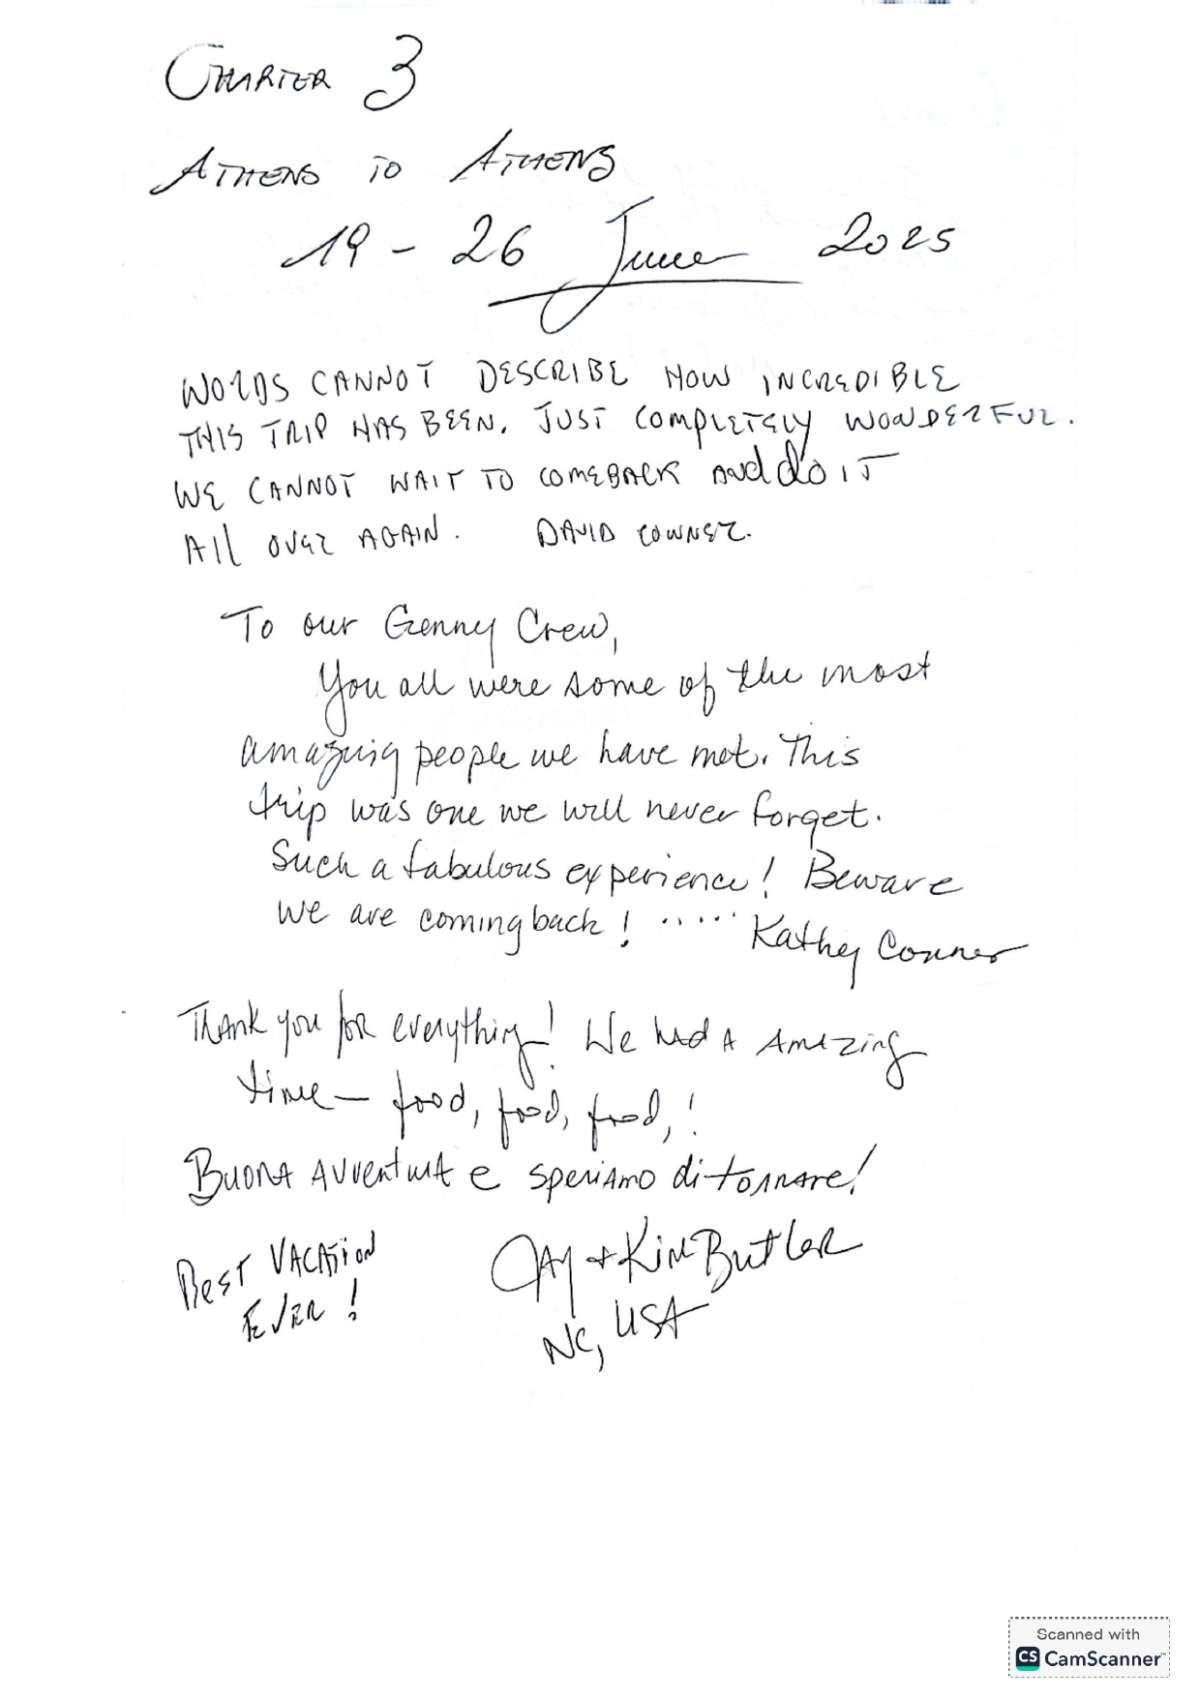 CHARTER 3
ATHENS TO ATHENS
19 - 26 June 2025
WORDS CANNOT DESCRIBE HOW INCREDIBLE
THIS TRIP HAS BEEN. JUST COMPLETELY WONDERFUL.
WE CANNOT WAIT TO COMEBACK AND do IT
All OVER AGAIN. DAVID CONNER.
To our Genny Crew,
You all were some of the most
amazing people we have met. This
trip was one we will never forget.
Such a fabulous experience! Beware
we are coming back! ..... Kathey Conner
Thank you for everything! We had A Amazing
time - food, food, food,!
Buona Avventura e speriamo di tornare!
Best VACAtion
EVER!
Jay + Kim Butler
NC, USA
Scanned with
CS CamScanner